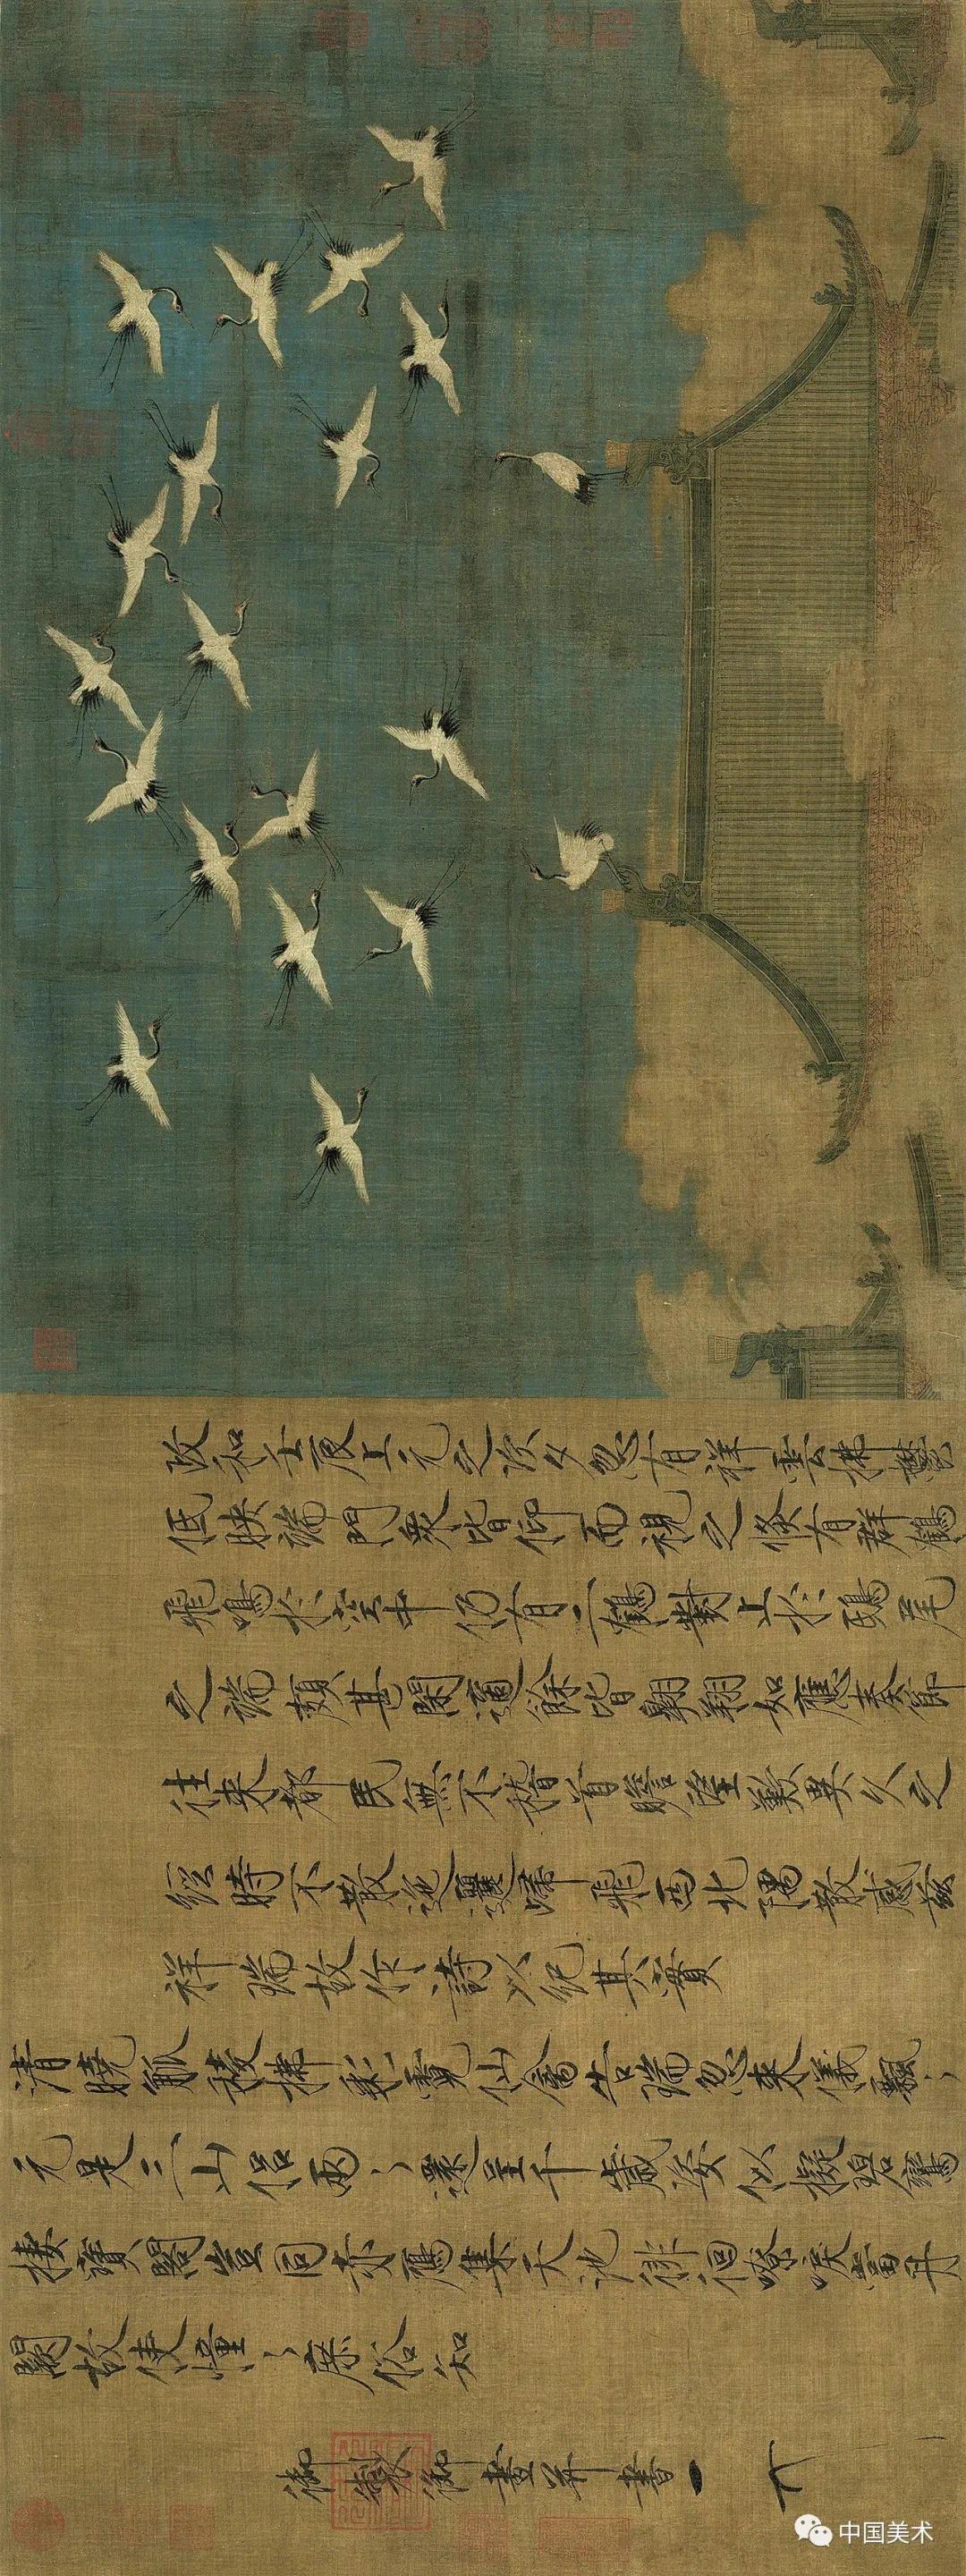 政和壬辰上元之次夕忽有祥雲拂鬱
低映端門衆皆仰而視之倐有群鶴
飛鳴於空中仍有二鶴對止於鴟尾
之端頗甚閒適餘皆翺翔如應奏節
往來都民無不稽首瞻望歎異久之
經時不散迤邐歸飛西北隅散感茲
祥瑞故作詩以紀其實
清曉觚稜拂彩霓仙禽告瑞忽來儀飄〻
元是三山侶兩〻還呈千歲姿似擬碧鸞
棲寶閣豈同赤鴈集天池徘徊嘹唳當丹
闕故使憧〻庶俗知
御製御畫并書
中国美术